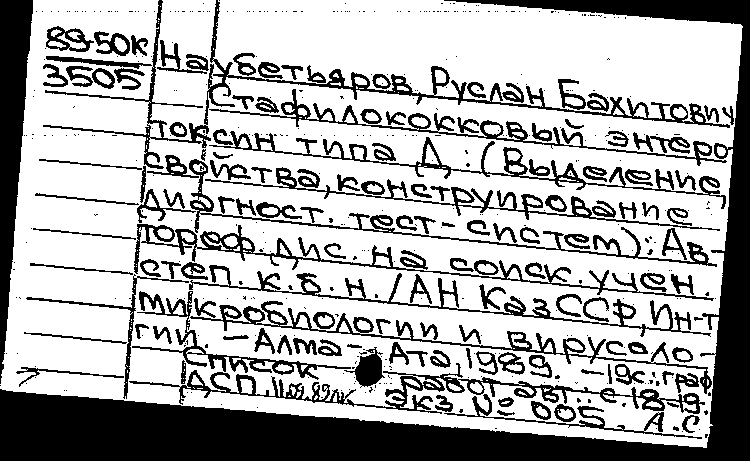 89-50К
3505
Наубетьяров, Руслан Бахитович
Стафилококковый энтеро
токсин типа Д : (Выделение,
свойства, конструирование
диагност. тест-систем) : Ав-
тореф. дис. на соиск. учен.
степ. к. б. н. / АН КазССР, Ин-т
микробиологии и вирусоло-
гии. — Алма-Ата, 1989. — 19с.: граф
Список работ авт.: с. 18-19.
ДСП. 11.09.89 Экз. № 005. А.С